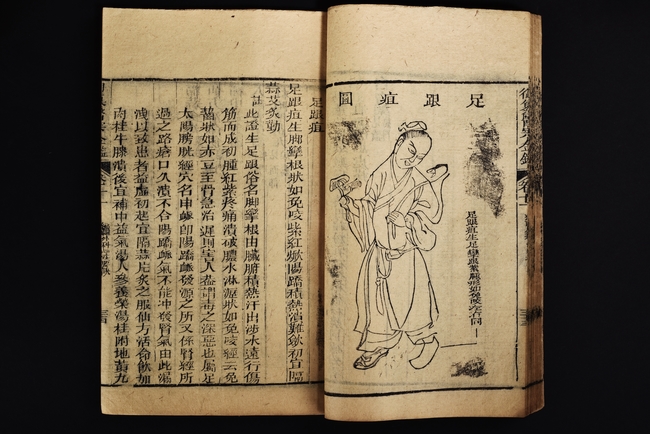 足跟疽圖
足跟疽生足攣跟紫腫形如
足跟疽
足跟疽生脚攣根狀如兔咬紫紅焮陽蹻積熱潰難斂初宜隔
蒜艾灸勤
註此證生足跟俗名脚攣根由臟腑積熱汗出涉水遠行傷
筋而成初腫紅紫疼痛潰破膿水淋漓狀如兔咬經云兔
齧狀如赤豆至骨急治遲則害人蓋謂毒之深惡也屬足
太陽膀胱經穴名申脈即陽蹻脈發源之所又係腎經所
過之路瘡口久潰不合陽蹻脈氣不能冲發腎氣由此漏
洩以致患者益虛初起宜隔蒜片灸之服仙方活命飲加
肉桂牛膝潰後宜補中益氣湯人參養榮湯桂附地黃丸